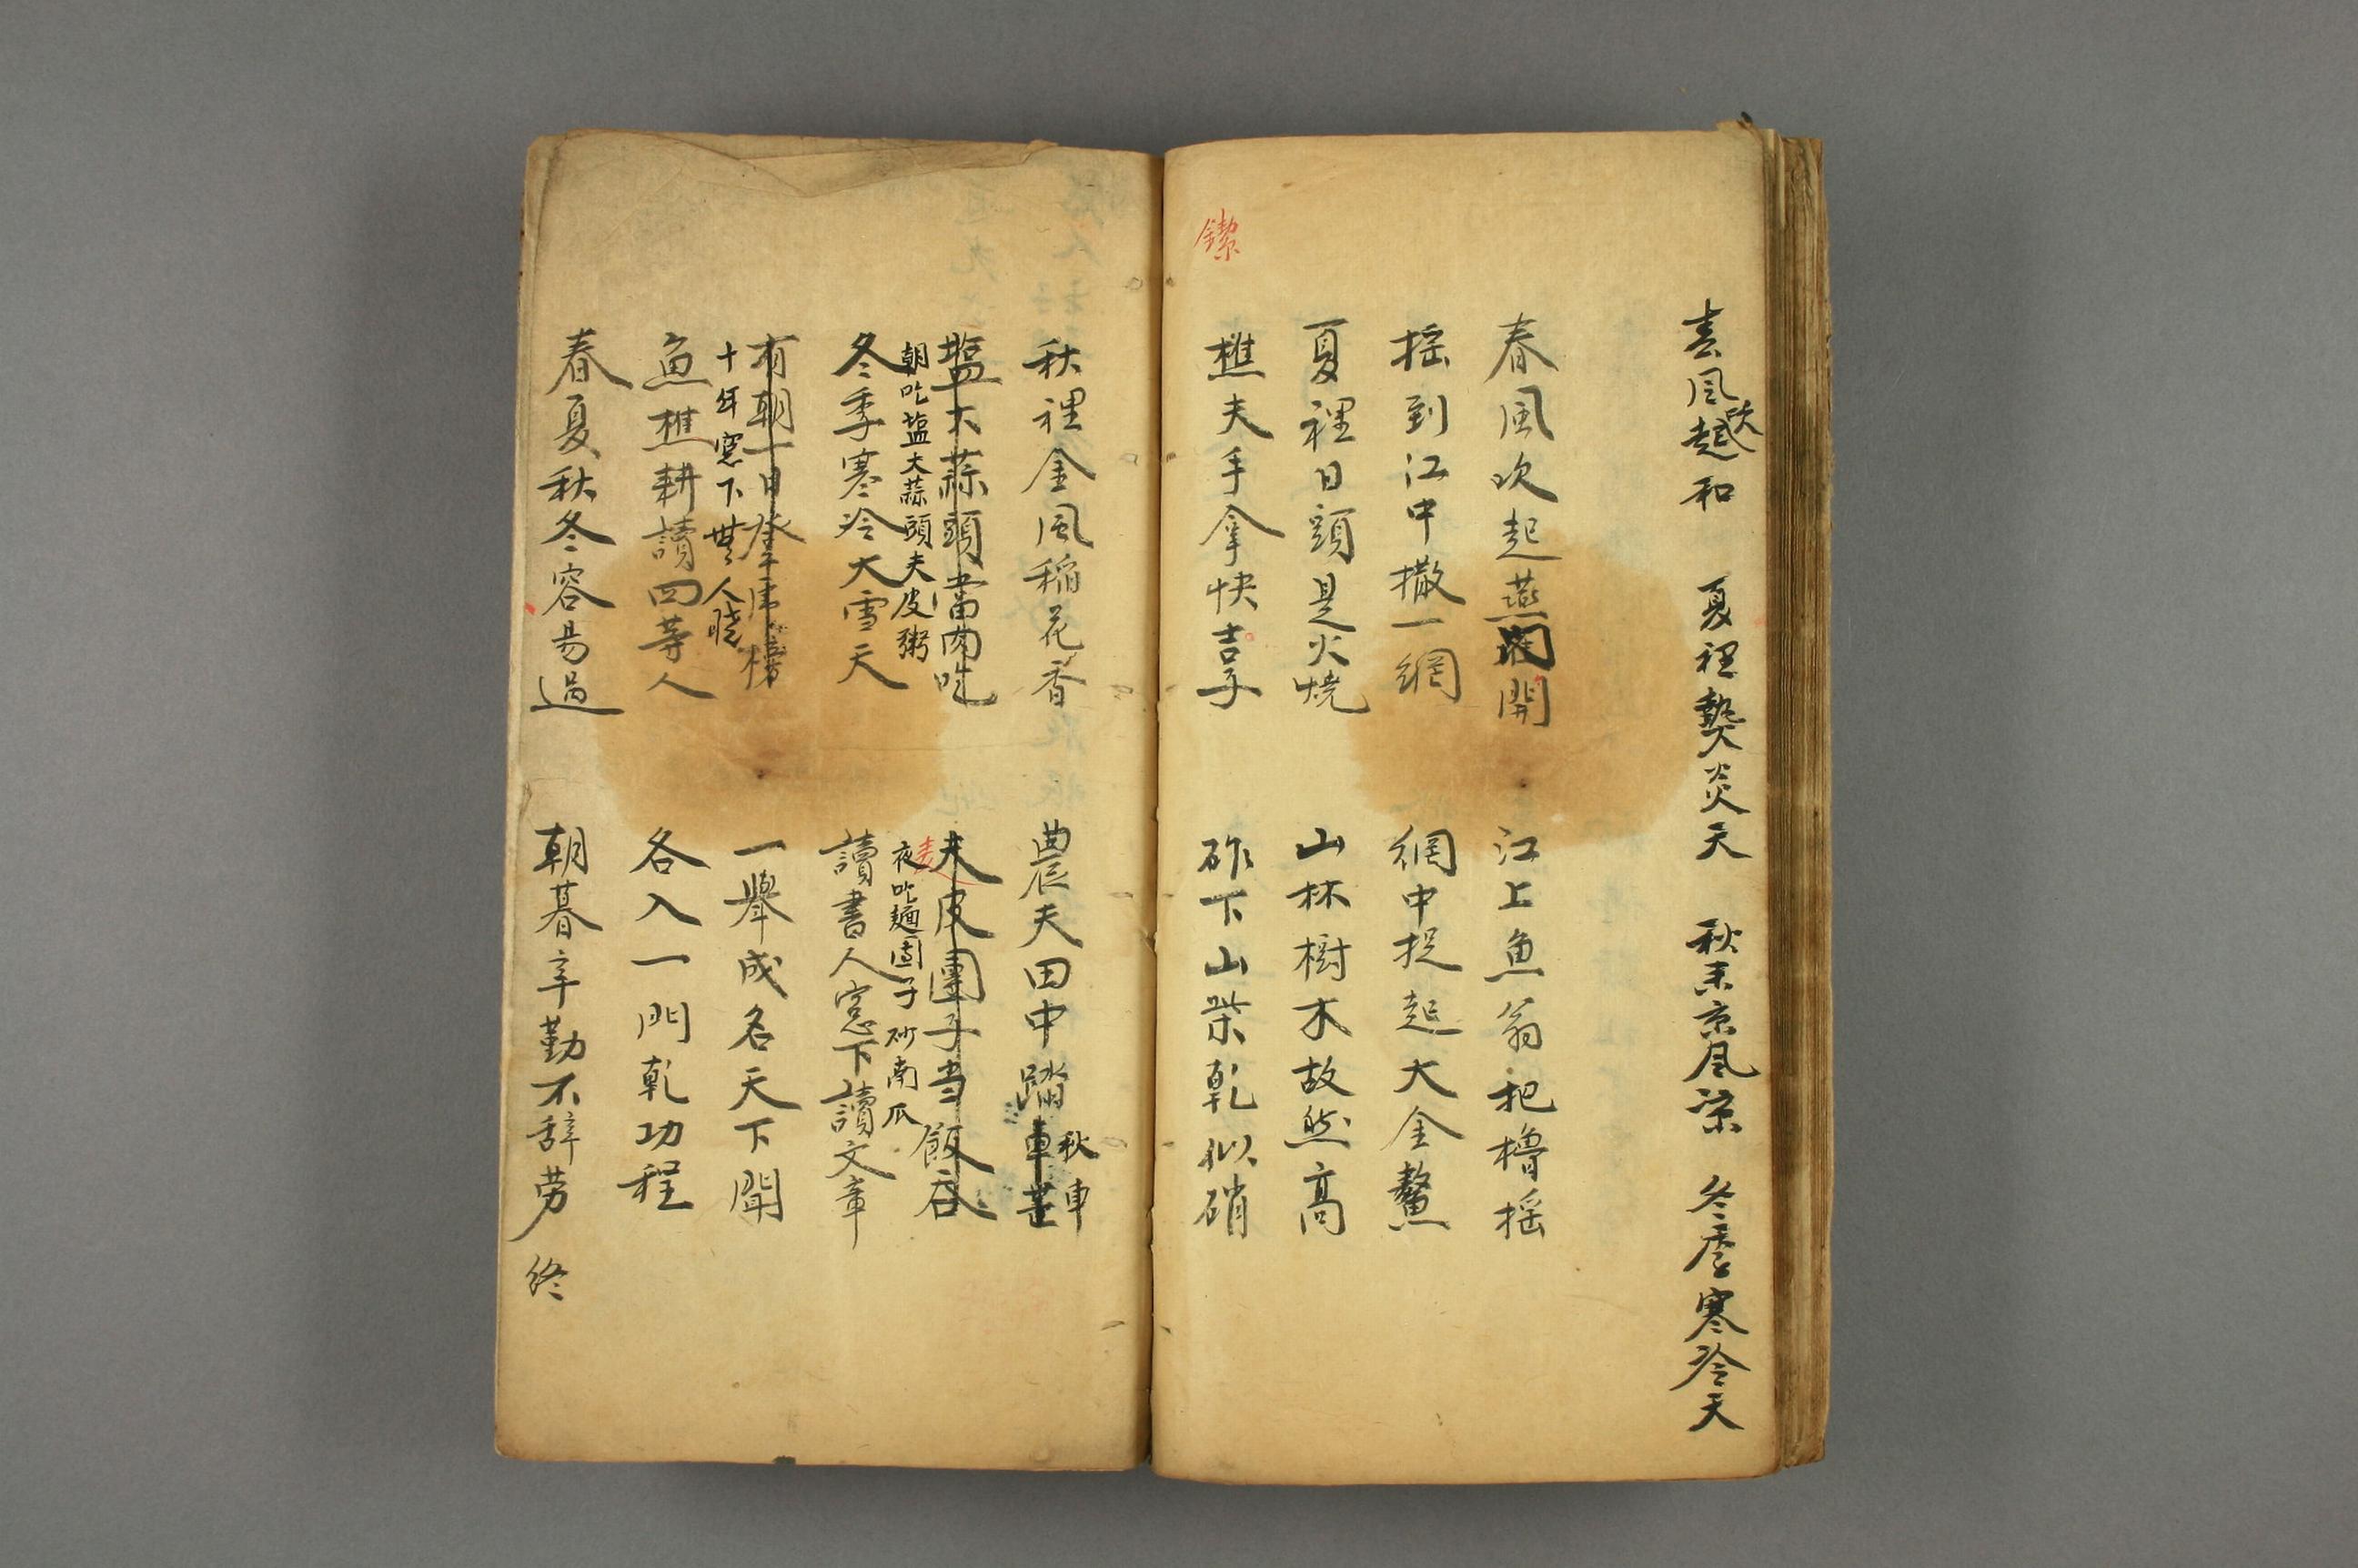 春風起和 夏裡熱炎天 秋末京風涼 冬季寒冷天
春風吹起燕開 江上魚翁把櫓摇
摇到江中撒一網 網中捉起大金鰲
夏裡日頭是火燒 山林樹木故然高
樵夫手拿快 砟下山柴乾似硝
秋裡金風稲花香 農夫田中踏車
秋車
塩大蒜頭當肉吃 夫皮團子当飯吞
朝吃塩大蒜頭夫皮粥 夜吃麺團子砂南瓜
冬季寒冷大雪天 讀書人窓下讀文章
有朝一日 一舉成名天下聞
十年窓下無人曉
魚樵耕讀四等人 各入一門乾功程
春夏秋冬容昜過 朝暮辛勤不辞劳 终